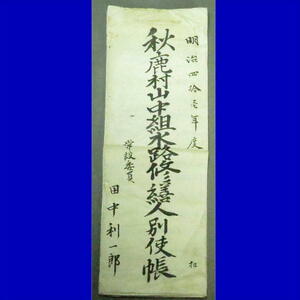 明治四拾壱年度
秋鹿村山中組水路修繕人別使帳
常設委員
田中利一郎